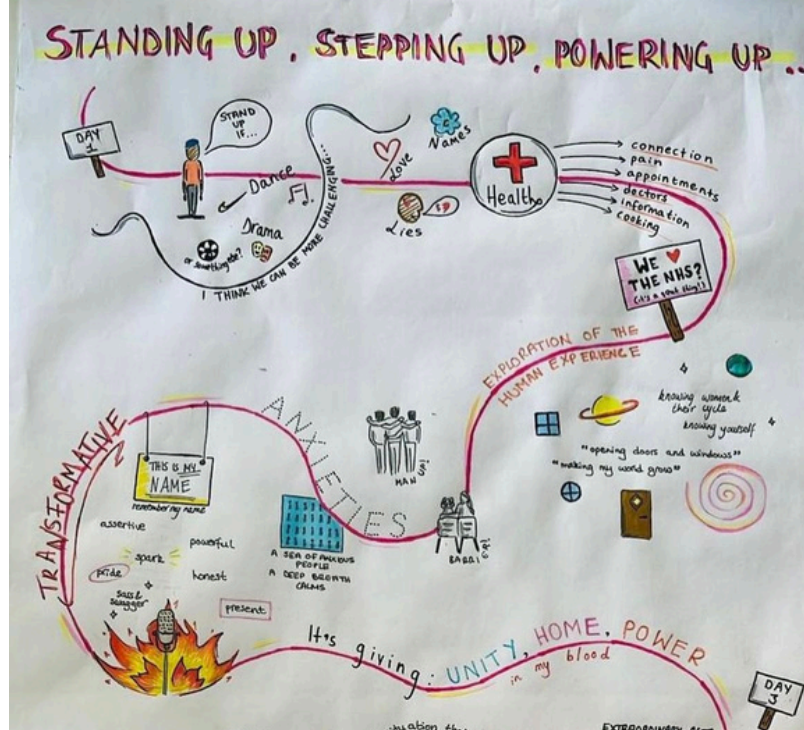 STANDING UP, STEPPING UP, POWERING UP...
DAY
1
STAND
UP
IF...
Dance
Drama
or something else?
I THINK WE CAN BE MORE CHALLENGING...
Love
Names
Lies
Health
connection
pain
appointments
doctors
information
cooking
WE ♥
THE NHS?
(it's a great thing!)
EXPLORATION OF THE
HUMAN EXPERIENCE
knowing women &
their cycle
knowing yourself
"opening doors and windows"
"making my world grow"
MAN UP!
ANXIETIES
A SEA OF ANXIOUS
PEOPLE
A DEEP BREATH
CALMS
TRANSFORMATIVE
THIS IS MY
NAME
remember my name
assertive
powerful
spark
pride
honest
sass &
swagger
present
It's giving: UNITY, HOME, POWER
in my blood
DAY
3